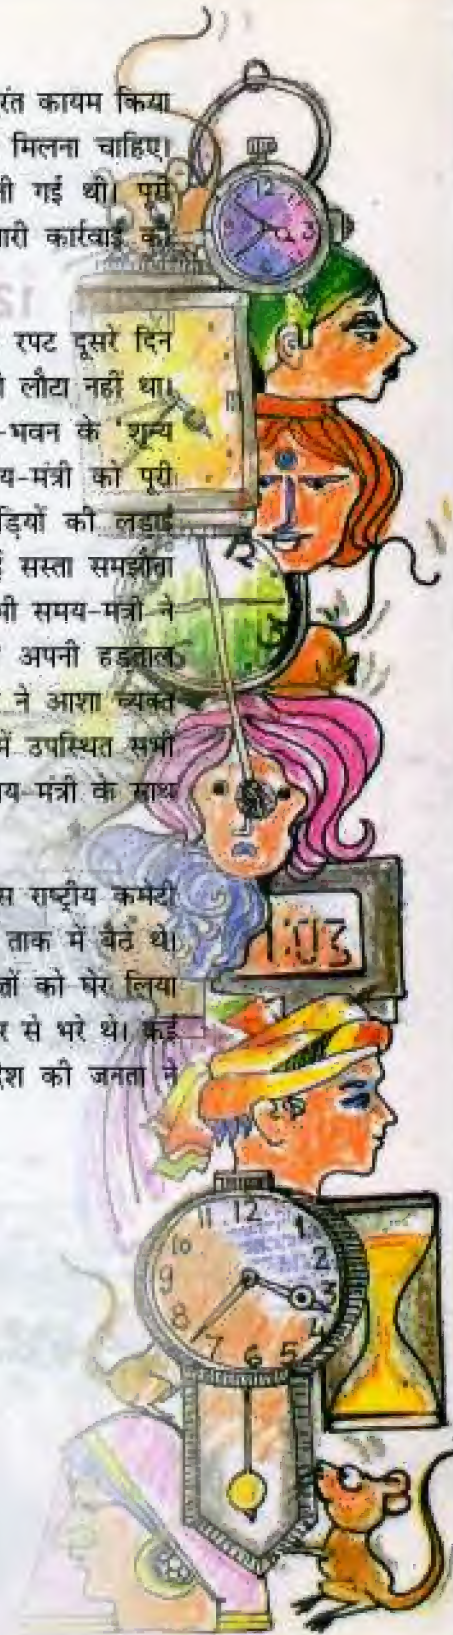 रंत कायम किया
मिलना चाहिए।
गई थी। पूरी
कार्रवाई की
रपट दूसरे दिन
लौटा नहीं था।
-भवन के 'शून्य
य-मंत्री को पूरी
ड़ियों की लड़ाई
सस्ता समझौता
भी समय-मंत्री ने
अपनी हड़ताल
ने आशा व्यक्त
में उपस्थित सभी
य-मंत्री के साथ
स राष्ट्रीय कमेटी
ताक में बैठे थे।
को घेर लिया
र से भरे थे। कई
देश की जनता ने
12 3
12
1:03
11 12 1
10 2
9 3
8 4
7 6 5